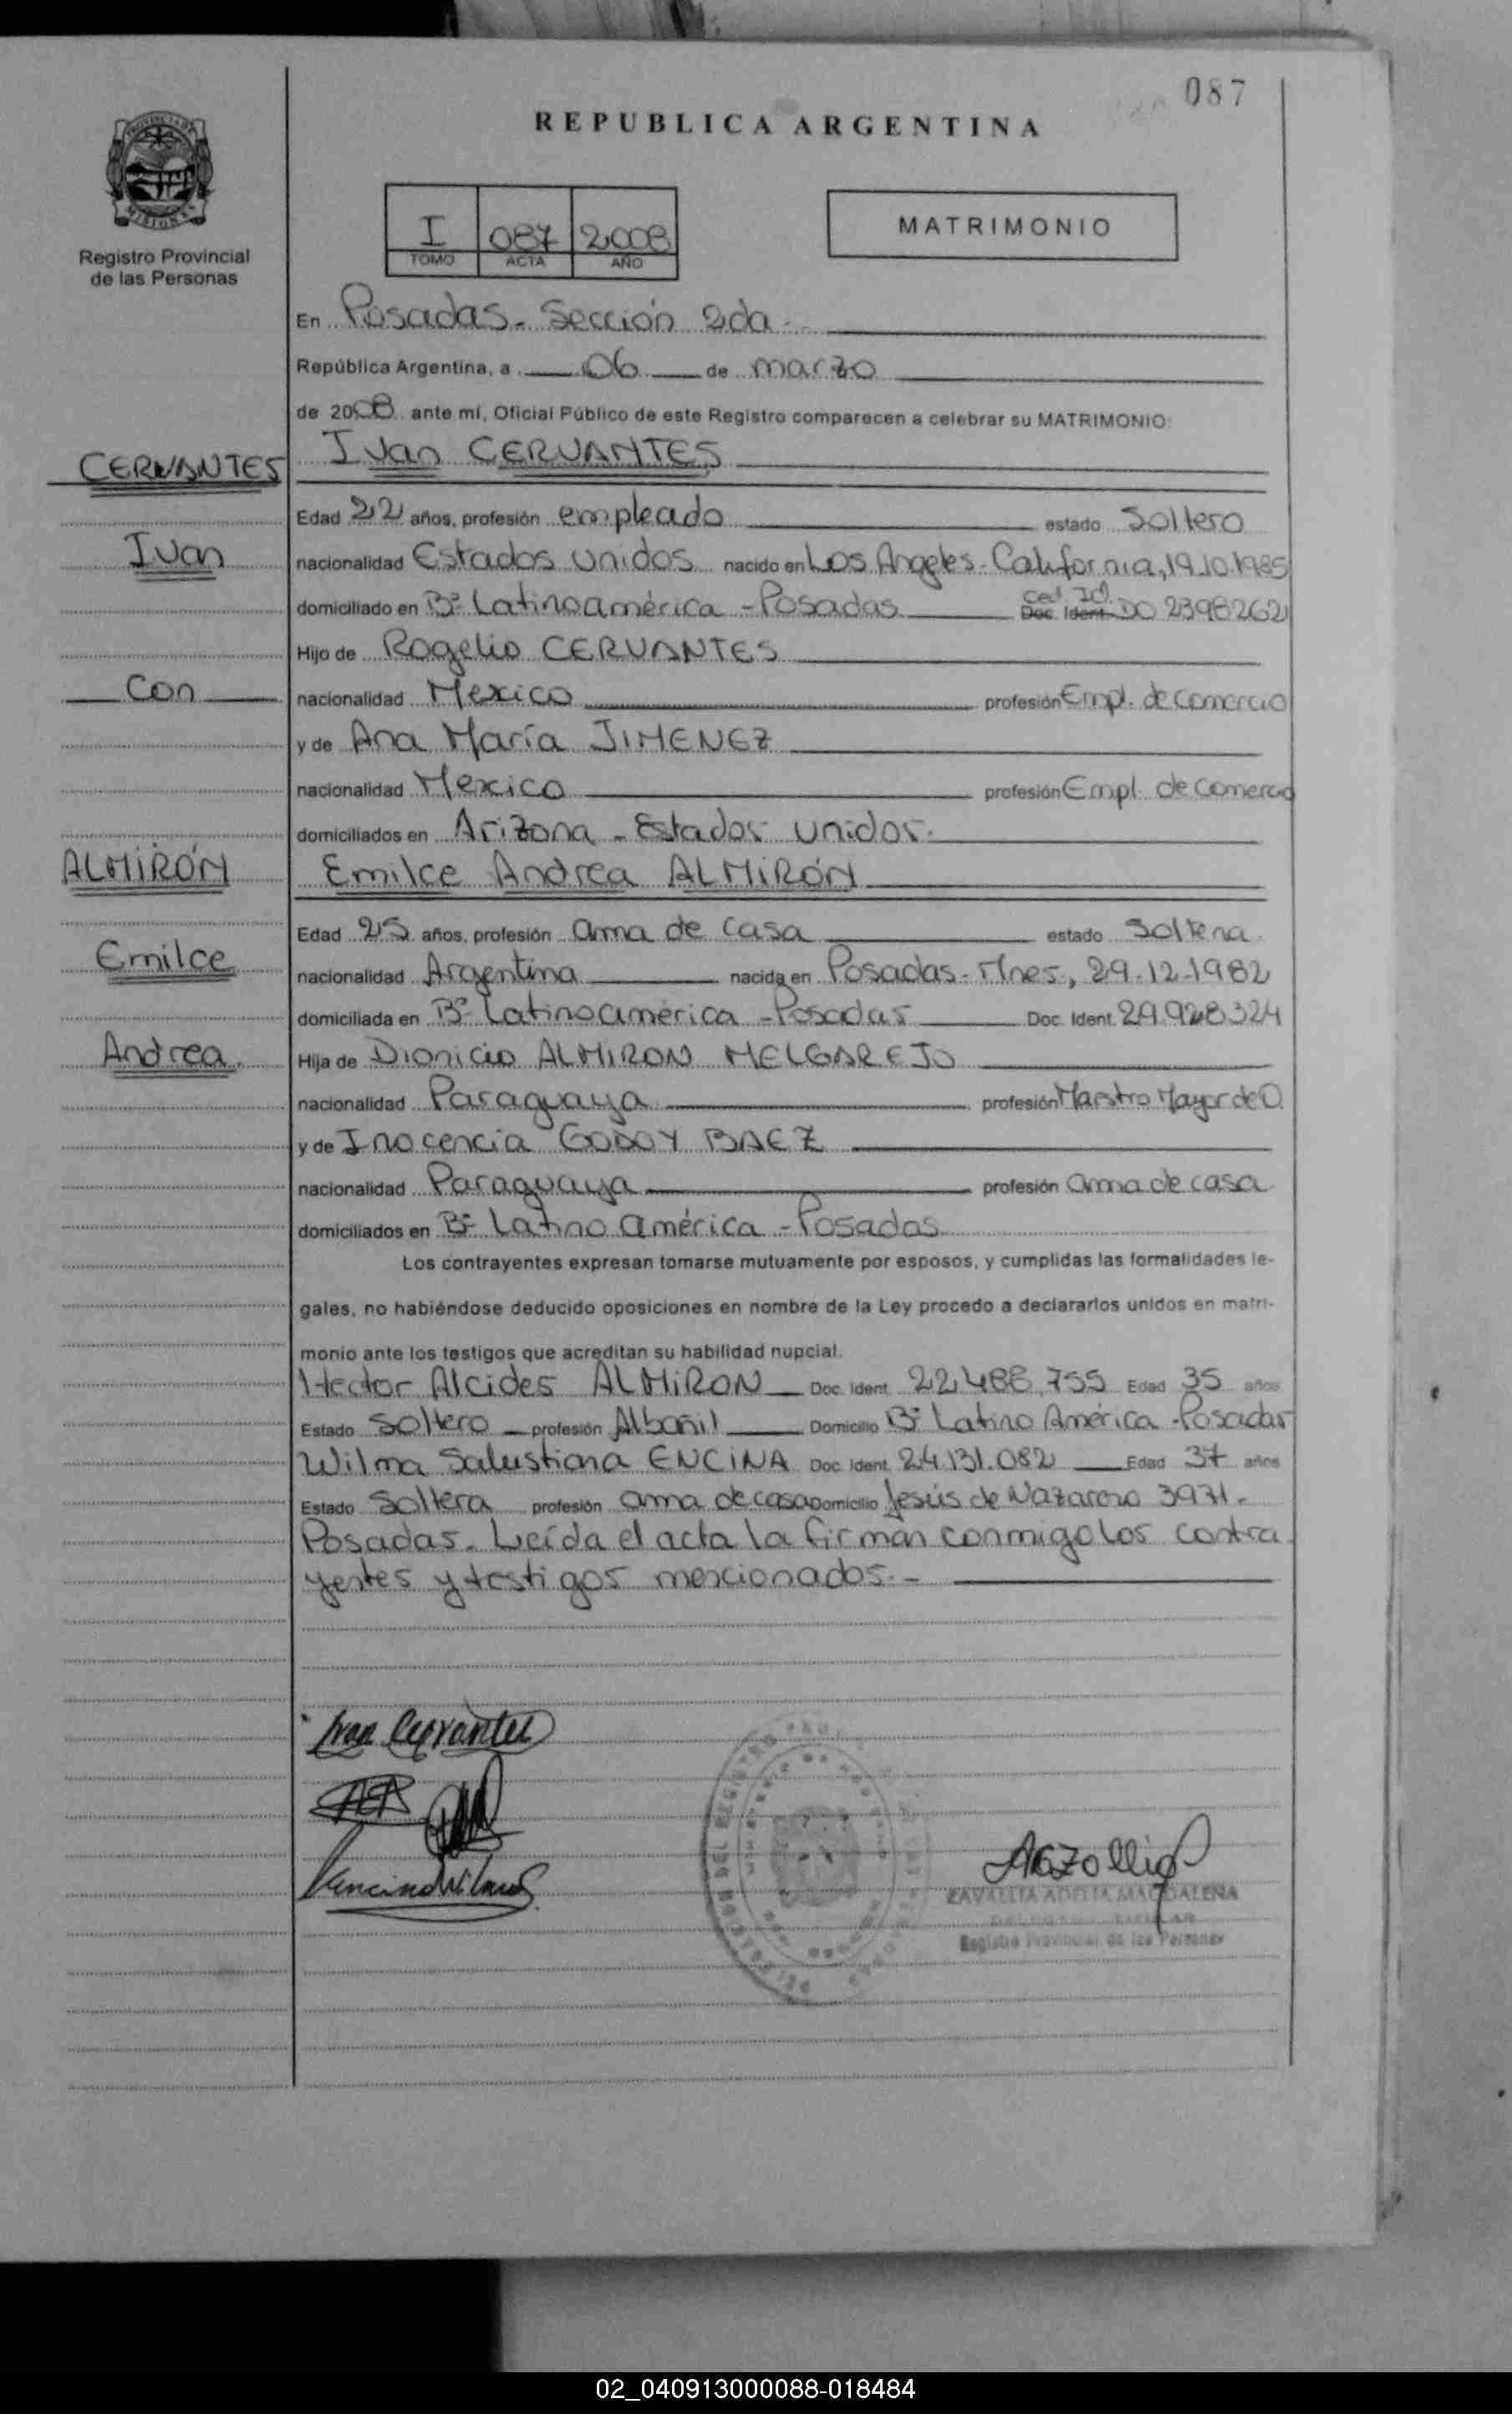 087
REPUBLICA ARGENTINA
PROVINCIA DE
MISIONES
Registro Provincial
de las Personas
I 087 2008
TOMO ACTA AÑO
MATRIMONIO
En Posadas - Sección 2da.
República Argentina, a 06 de marzo
de 2008 ante mi, Oficial Público de este Registro comparecen a celebrar su MATRIMONIO:
CERVANTES
Ivan CERVANTES
Edad 22 años, profesión empleado estado Soltero
Ivan
nacionalidad Estados Unidos nacido en Los Angeles - California, 19.10.1985
domiciliado en Bº Latinoamérica - Posadas Ced. Id. Doc. Ident. DO 2398262
Hijo de Rogelio CERVANTES
Con
nacionalidad Mexico profesión Empl. de Comercio
y de Ana María JIMENEZ
nacionalidad Mexico profesión Empl. de Comercio
domiciliados en Arizona - Estados Unidos.
ALMIRÓN
Emilce Andrea ALMIRÓN
Edad 25 años, profesión ama de casa estado Soltera.
Emilce
nacionalidad Argentina nacida en Posadas - Mnes., 29-12-1982
domiciliada en Bº Latinoamérica - Posadas Doc. Ident. 29.928.324
Andrea.
Hija de Dionicio ALMIRON MELGAREJO
nacionalidad Paraguaya profesión Maestro Mayor de O.
y de Inocencia GODOY BAEZ
nacionalidad Paraguaya profesión ama de casa
domiciliados en Bº Latino américa - Posadas
Los contrayentes expresan tomarse mutuamente por esposos, y cumplidas las formalidades le-
gales, no habiéndose deducido oposiciones en nombre de la Ley procedo a declararlos unidos en matri-
monio ante los testigos que acreditan su habilidad nupcial.
Hector Alcides ALMIRON Doc. Ident. 22.488.755 Edad 35 años
Estado Soltero profesión Albañil Domicilio Bº Latino América - Posadas
Wilma Salustiana ENCINA Doc. Ident. 24.131.082 Edad 37 años
Estado Soltera profesión ama de casa Domicilio Jesús de Nazareno 3971 -
Posadas. Leída el acta la firman conmigo los contra
yentes y testigos mencionados. -
Ivan Cervantes
ZAVALLIA ADELIA MAGDALENA
Registro Provincial de las Personas
02_040913000088-018484